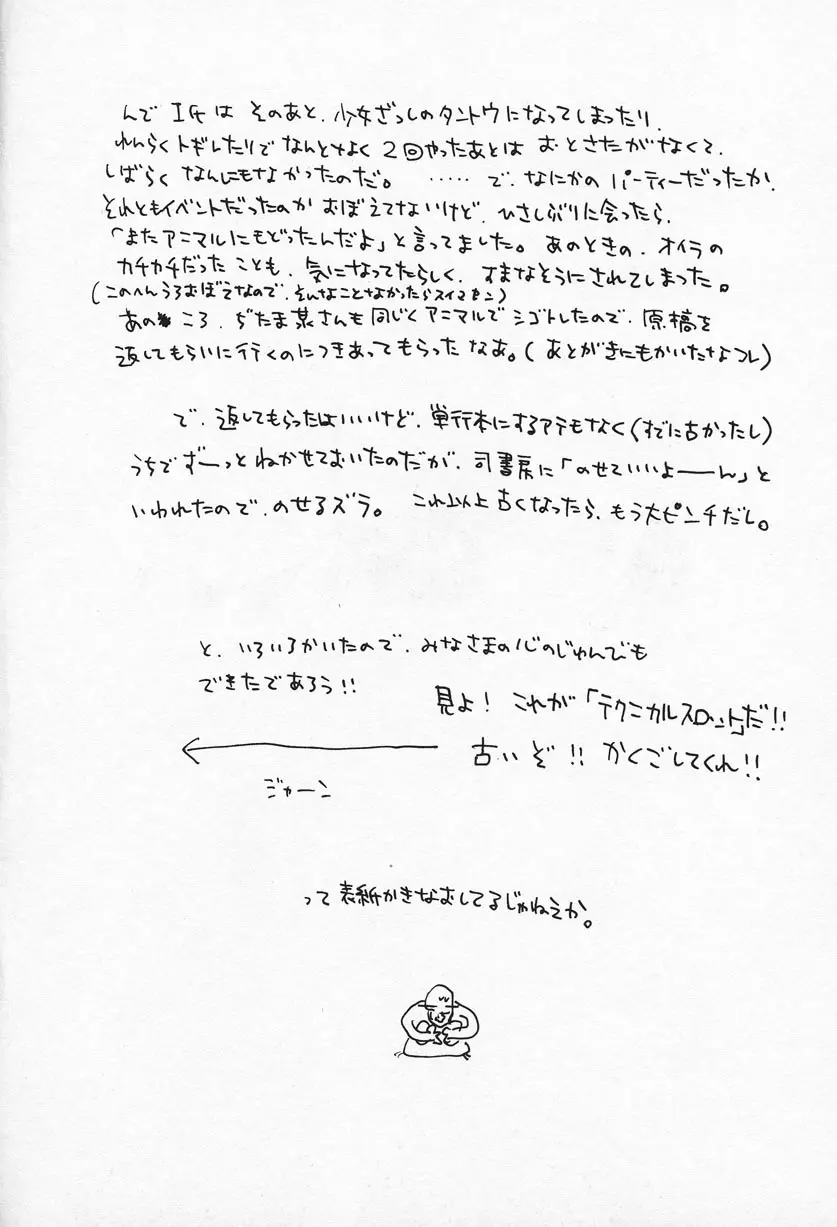 んで I氏は そのあと、少女ざっしのタントウになってしまったり、
れんらくトギレたりで なんとなく 2回やったあとは おとさたがなくて、
しばらく なんにもなかったのだ。 ‥‥‥ で、なにかの パーティーだったか、
それともイベントだったのか おぼえてないけど、ひさしぶりに会ったら、
「またアニマルにもどったんだよ」と言ってました。 あのときの、オイラの
カチカチだった ことも、気になってたらしく、すまなそうにされてしまった。
(このへんうろおぼえなので、そんなことなかったらスイマセン)
あの ころ、ぢたま某さんも同じくアニマルでシゴトしたので、原稿を
返してもらいに行くのにつきあってもらった なあ。(あとがきにもかいたなコレ)
で、返してもらったはいいけど、単行本にするアテもなく(すでに古かったし)
うちで ずーっと ねかせておいたのだが、司書房に「のせていいよーーん」と
いわれたので、のせるズラ。 これ以上古くなったら、もう大ピンチだし。
と、いろいろかいたので、みなさまの心のじゅんびも
できたであろう!!
見よ! これが「テクニカルスロット」だ!!
古いぞ!! かくごしてくれ!!
ジャーン
って 表紙かきなおしてるじゃねえか。